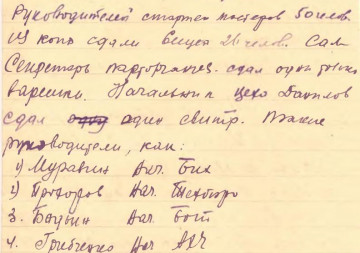 Руководителей старших мастеров 50 челов.
из коих сдали вещей 26 челов. Сам
Секретарь парторганиз. сдал одни только
варешки. Начальник цеха Данилов
сдал один свитр. Такие
руководители, как:
1) Муравкин Нач. Бих
2) Прохоров Нач. Техбюро
3. Нач. Бот
4. Грибченко Нач АХЧ